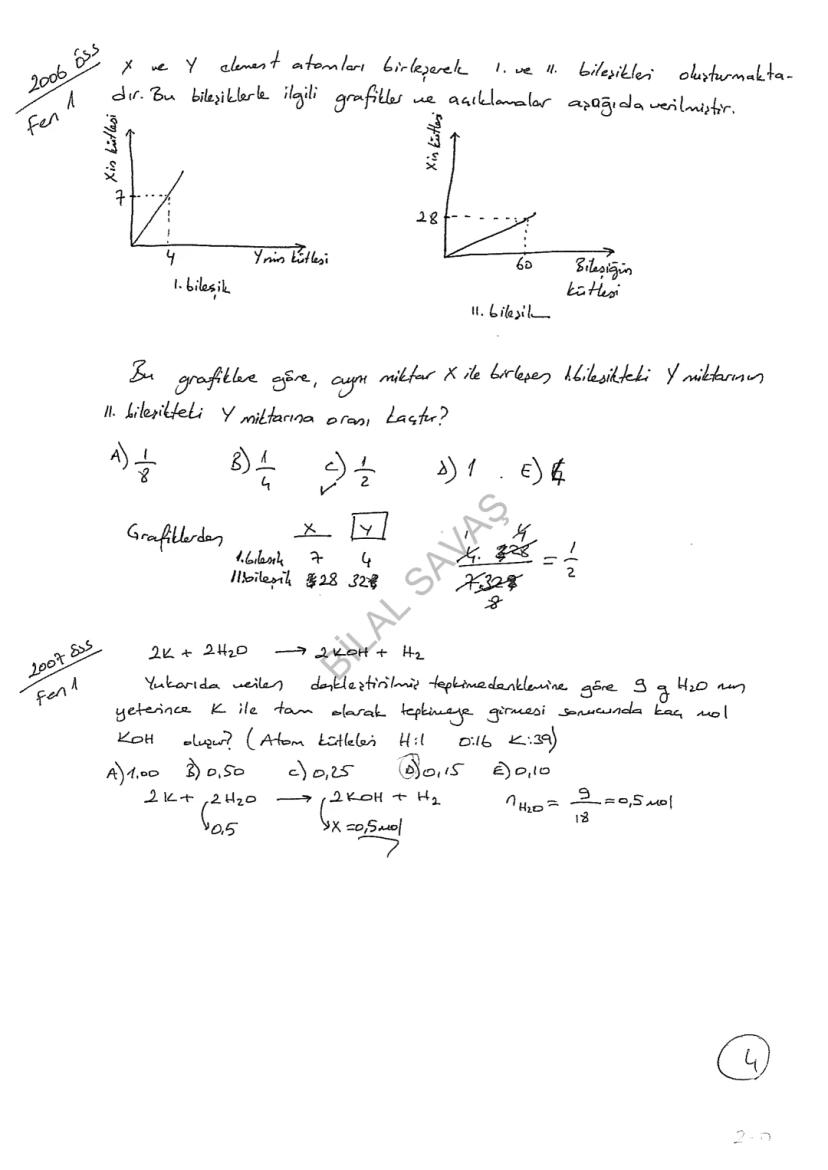 2006 ÖSS
Fen 1
X ve Y element atomları birleşerek I. ve II. bileşikleri oluşturmakta-
dır. Bu bileşiklerle ilgili grafikler ve açıklamalar aşağıda verilmiştir.
X in kütlesi
7
4
Y nin kütlesi
I. bileşik
X in kütlesi
28
60
Bileşiğin
kütlesi
II. bileşik
Bu grafiklere göre, aynı miktar X ile birleşen I. bileşikteki Y miktarının
II. bileşikteki Y miktarına oranı kaçtır?
A) 1/8 B) 1/4 C) 1/2 D) 1 . E) 4
Grafiklerden
X Y
I. bileşik 7 4
II. bileşik 28 32
4. 28 / 7.32 = 1/2
1 4
8
BİLAL SAVAŞ
2007 ÖSS
Fen 1
2K + 2H₂O → 2KOH + H₂
Yukarıda verilen denkleştirilmiş tepkime denklemine göre 9 g H₂O nun
yeterince K ile tam olarak tepkimeye girmesi sonucunda kaç mol
KOH oluşur? (Atom kütleleri H:1 O:16 K:39)
A) 1,00 B) 0,50 C) 0,25 D) 0,15 E) 0,10
2K + 2H₂O → 2KOH + H₂ n H₂O = 9/18 = 0,5 mol
0.5 X = 0,5 mol
4